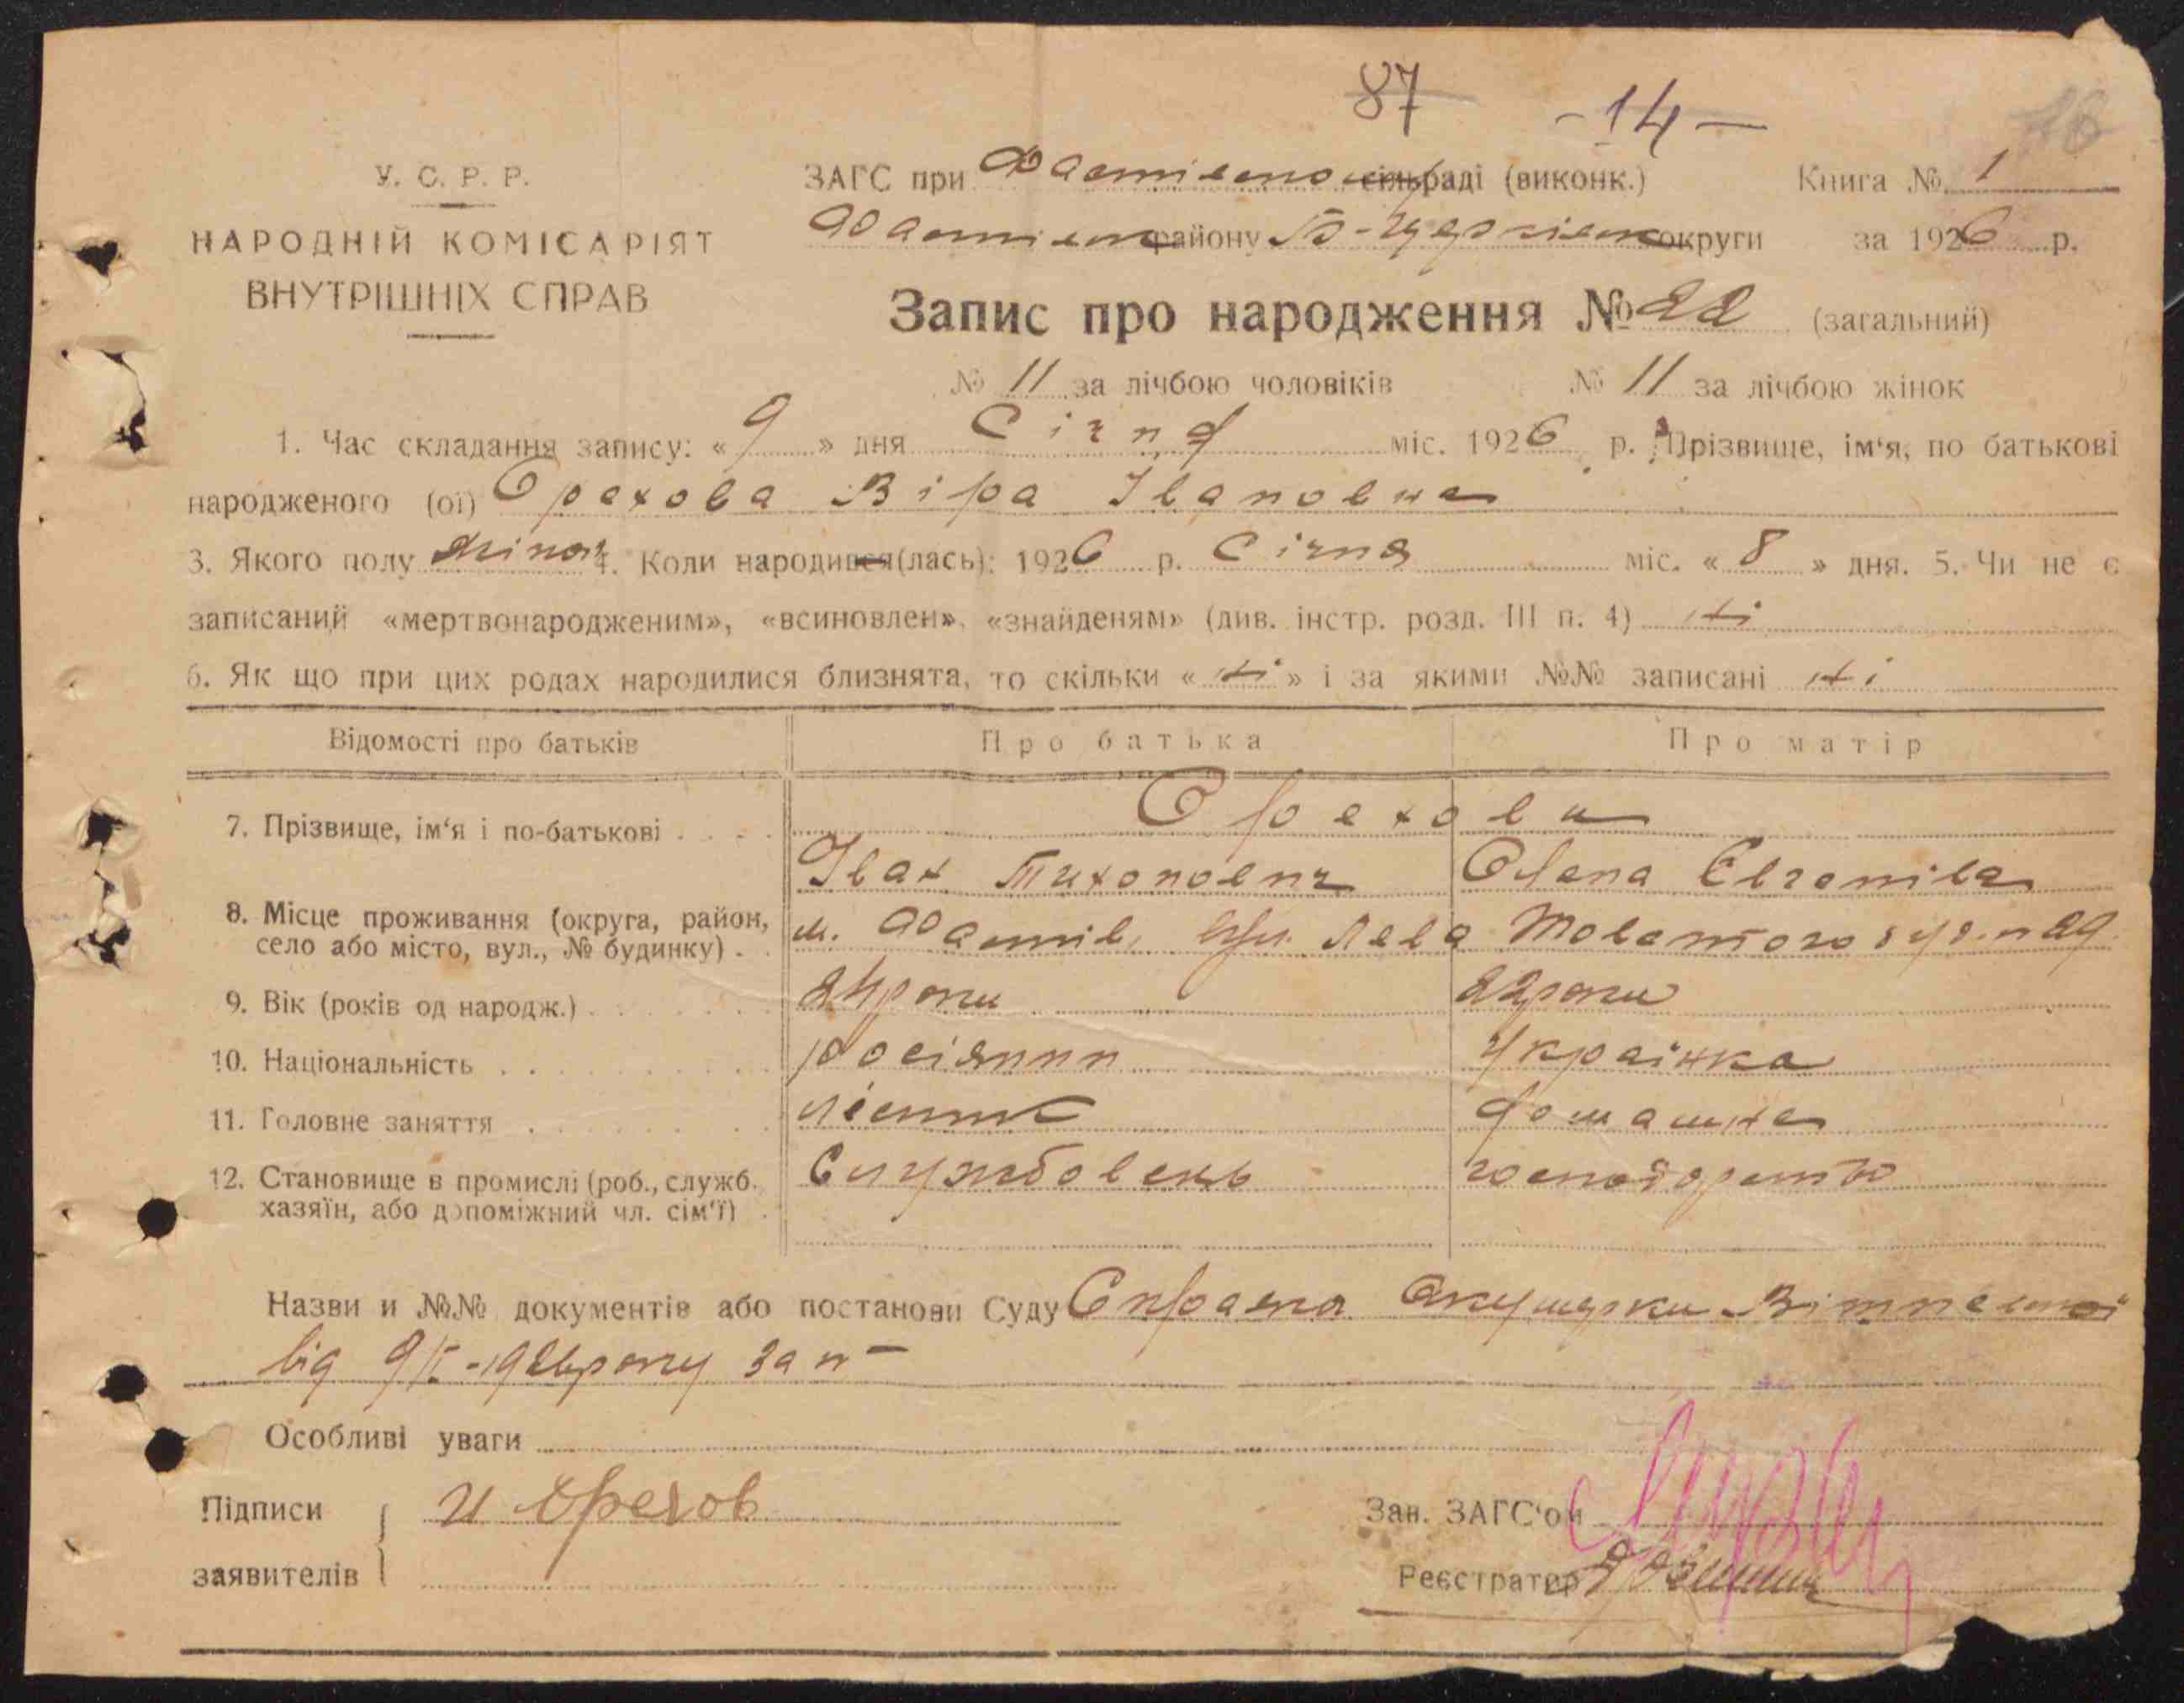 87 - 14 -
У. С. Р. Р.
НАРОДНІЙ КОМІСАРІЯТ
ВНУТРІШНІХ СПРАВ
ЗАГС при Фастівско сільраді (виконк.) Книга № 1
Фастівск району Б-Церківск округи за 1926 р.
Запис про народження № 22 (загальний)
№ 11 за лічбою чоловіків № 11 за лічбою жінок
1. Час складання запису: « 9 » дня Січня міс. 1926 р. 2. Прізвище, ім‘я, по батькові
народженого (ої) Орехова Віра Івановна
3. Якого полу жіноч 4. Коли народився(лась): 1926 р. Січня міс. « 8 » дня. 5. Чи не є
записаний «мертвонародженим», «всиновлен», «знайденям» (див. інстр. розд. III п. 4) ні
6. Як що при цих родах народилися близнята, то скільки « ні » і за якими №№ записані ні
Відомості про батьків Про батька Про матір
7. Прізвище, ім‘я і по-батькові Орехови
Іван Тихонович Олена Євгенівна
8. Місце проживання (округа, район,
село або місто, вул., № будинку) м. Фастів, вул. Лева Товстого буд. н 29
9. Вік (років од народж.) 24 роки 22 роки
10. Національність росіянин українка
11. Головне заняття лісник домашнє
12. Становище в промислі (роб., служб.
хазяїн, або допоміжний чл. сім‘ї) Службовець господарство
Назви и №№ документів або постанови Суду Справка Акушерки
від 9/I-1926 року за н -
Особливі уваги
Підписи
заявителів И Орехов
Зав. ЗАГС‘ом
Реєстратор